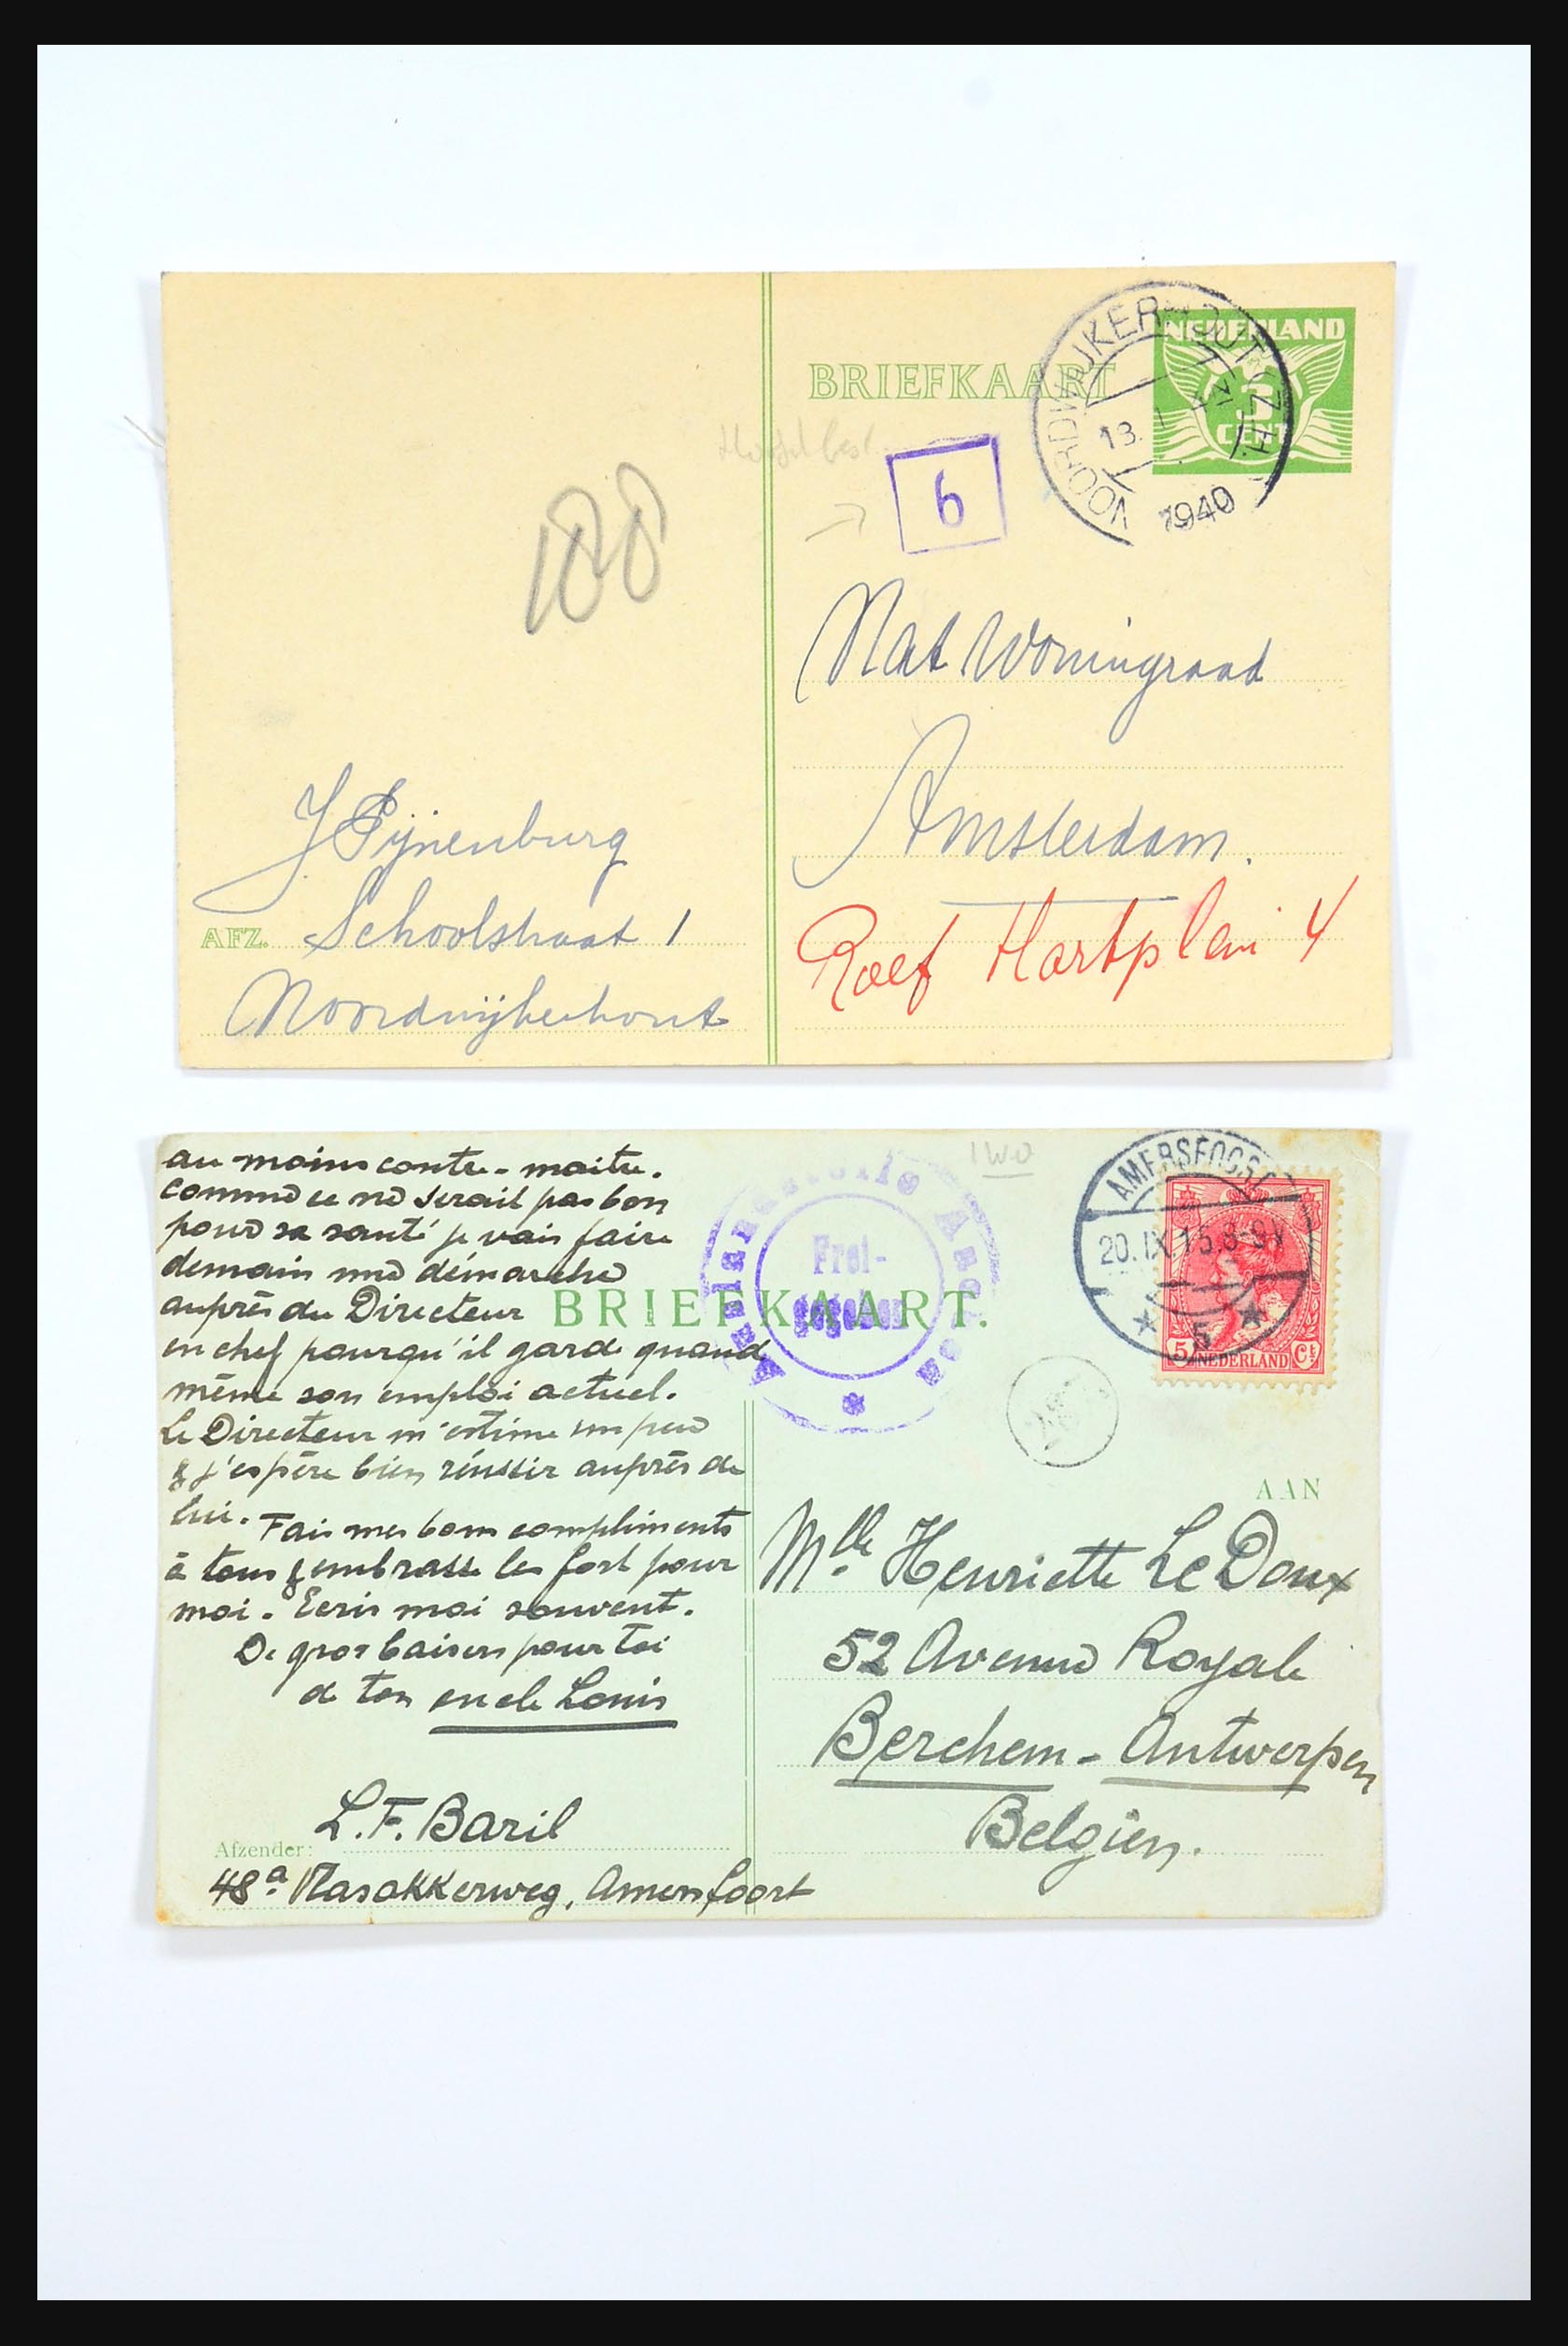 BRIEFKAART
NEDERLAND
3
CENT
NOORDWIJKERHOUT (Z.H.)
13
1940
6
100
Nat Woningraad
Amsterdam.
Roelf Hartplein 4
J Pijnenburg
AFZ. Schoolstraat 1
Noordwijkerhout
au moins contre-maitre.
Comme ce ne serait pas bon
pour sa santé je vais faire
demain une démarche
auprès du Directeur
en chef pourqu'il garde quand
même son emploi actuel.
Le Directeur m'estime un peu
& j'espère bien réussir auprès de
lui. Fais mes bons compliments
à tous & embrasse les fort pour
moi. Ecris moi souvent.
De gros baisers pour toi
de ton oncle Louis
L.F. Baril
Afzender:
48a. Vlasakkerweg, Amersfoort
BRIEFKAART.
Frei-
gegeben
IWO
AMERSFOORT
20.IX.15.8-9V
5
5 NEDERLAND Ct
AAN
Mlle. Henriette Le Doux
52 Avenue Royale
Berchem - Antwerpen
Belgien.